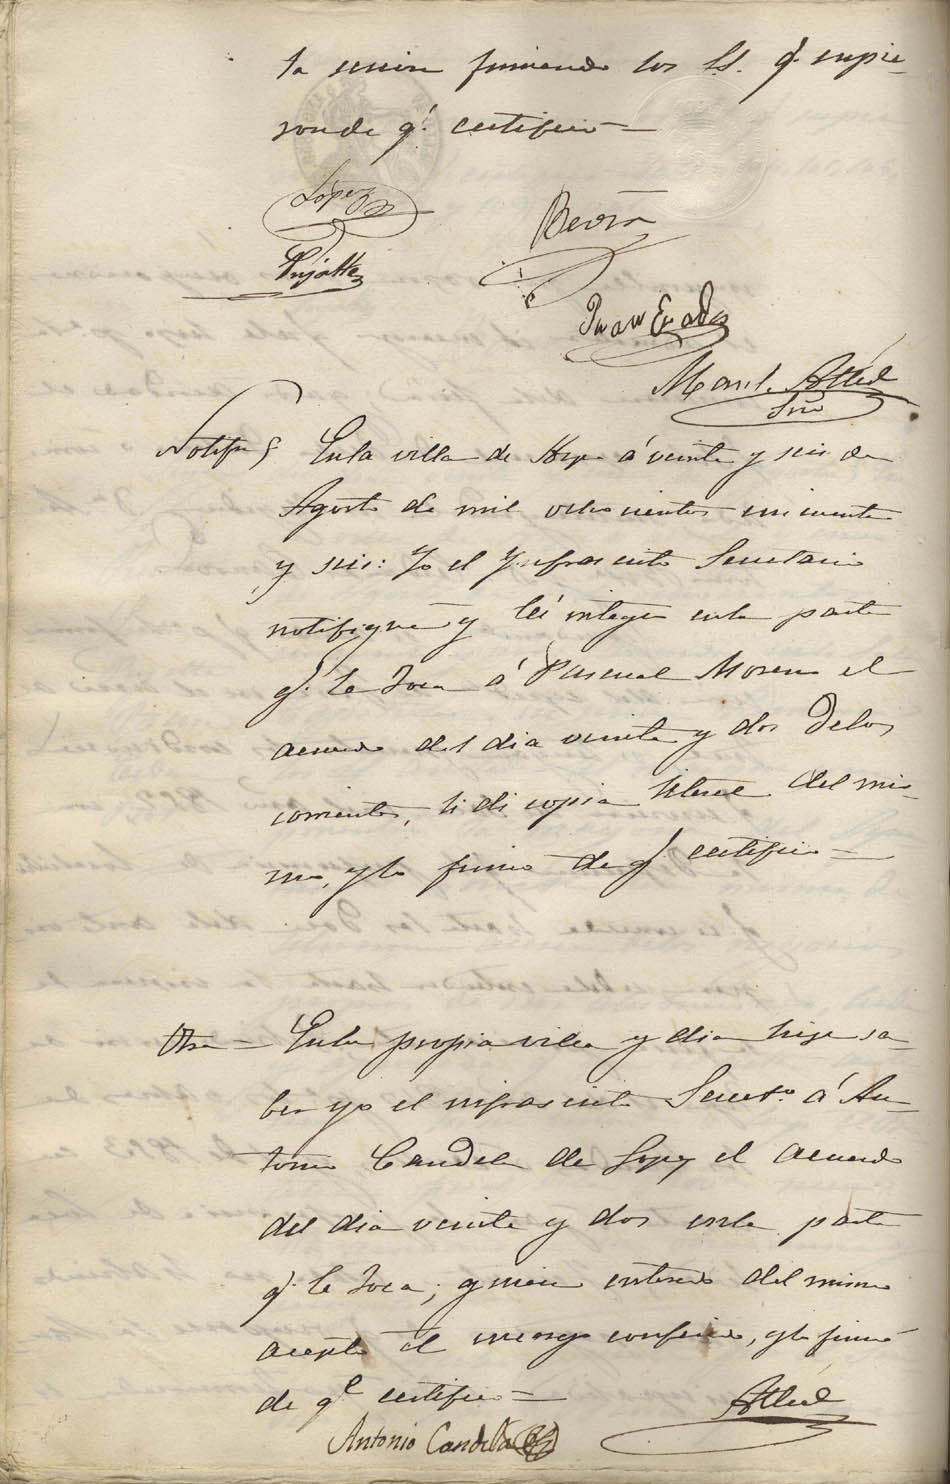 la sesion firmando los SS. q.e supie-
ron de q.e certifico =
Lopez
Pujalte
Juan
Man.l
Srio
Notifn. En la villa de á veinte y seis de
Agosto de mil ochocientos cincuenta
y seis: Yo el Ynfrascrito Secretario
notifiqué y leí integro en la parte
q.e le toca á Pascual Moreno el
acuerdo del dia veinte y dos de los
corrientes, le dí copia literal del mis-
mo, y lo firmo de q.e certifico =
Otra = En la propia villa y dia hice sa-
ber yo el infrascrito Secret.o á An-
tonio Candela de Lopez el acuerdo
del dia veinte y dos en la parte
q.e le toca; y enterado del mismo
acepto el encargo conferido, y lo firmó
de q.e certifico =
Antonio Candela